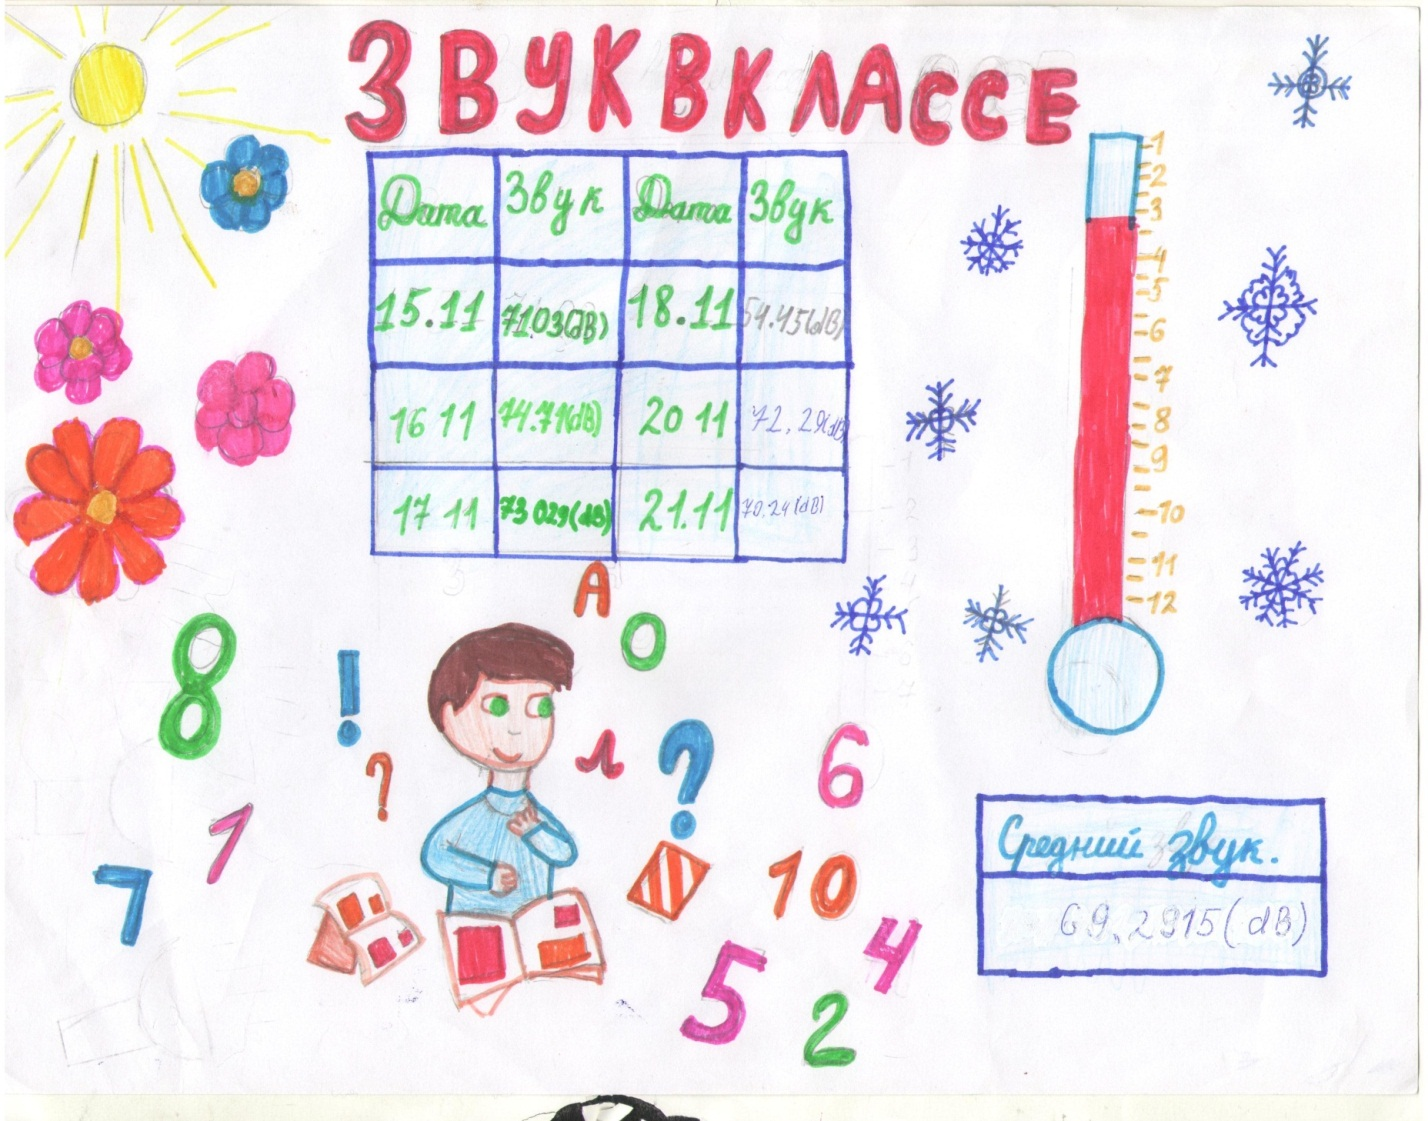 ЗВУК В КЛАССЕ
Дата Звук Дата Звук
15.11 71.03(dB) 18.11 54.45(dB)
16 11 74.71(dB) 20 11 72.29(dB)
17 11 73 029(dB) 21.11 70.24(dB)
1
2
3
4
5
6
7
8
9
10
11
12
А
О
8
!
?
л
?
6
1
7
10
4
5
2
Средний звук.
69.2915(dB)